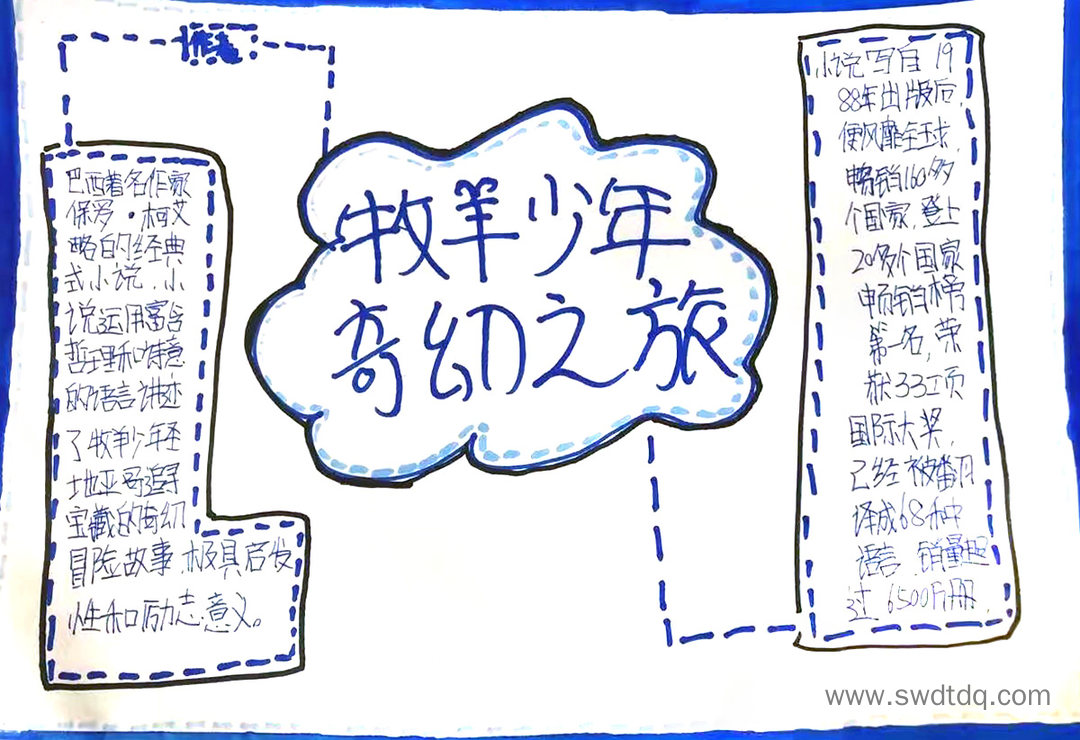 作者
牧羊少年
奇幻之旅
巴西著名作家
保罗·柯艾
略的经典
式小说,小
说运用富含
哲理和诗意
的语言讲述
了牧羊少年圣
地亚哥追寻
宝藏的奇幻
冒险故事,极具启发
性和励志意义。
小说写自19
88年出版后,
便风靡全球,
畅销160多
个国家,登上
20多个国家
畅销榜
第一名,荣
获33项
国际大奖,
已经被翻
译成68种
语言,销量超
过6500万册,
www.swdtdq.com